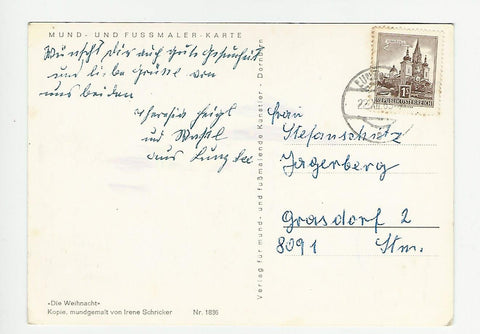 MUND- UND FUSSMALER-KARTE
Wünscht Dir auch gute Gesundheit
und liebe Grüße von
uns beiden
Theresia
und
aus
Verlag für mund- und fußmalende Künstler - Dornbirn
Frau
Stefanschitz
Jagerberg
Grasdorf 2
8091 Stm.
REPUBLIK ÖSTERREICH
»Die Weihnacht«
Kopie, mundgemalt von Irene Schricker Nr. 1836